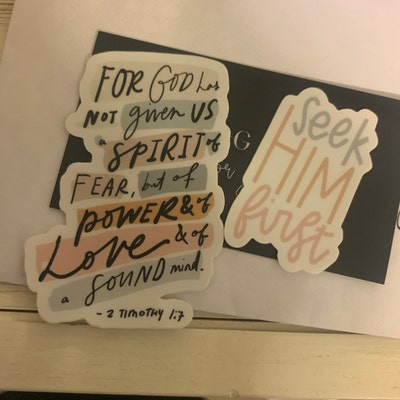 FOR GOD has
NOT given US
a SPIRIT of
FEAR, but of
POWER & of
LOVE & of
a SOUND mind.
- 2 TIMOTHY 1:7
seek
HIM
first